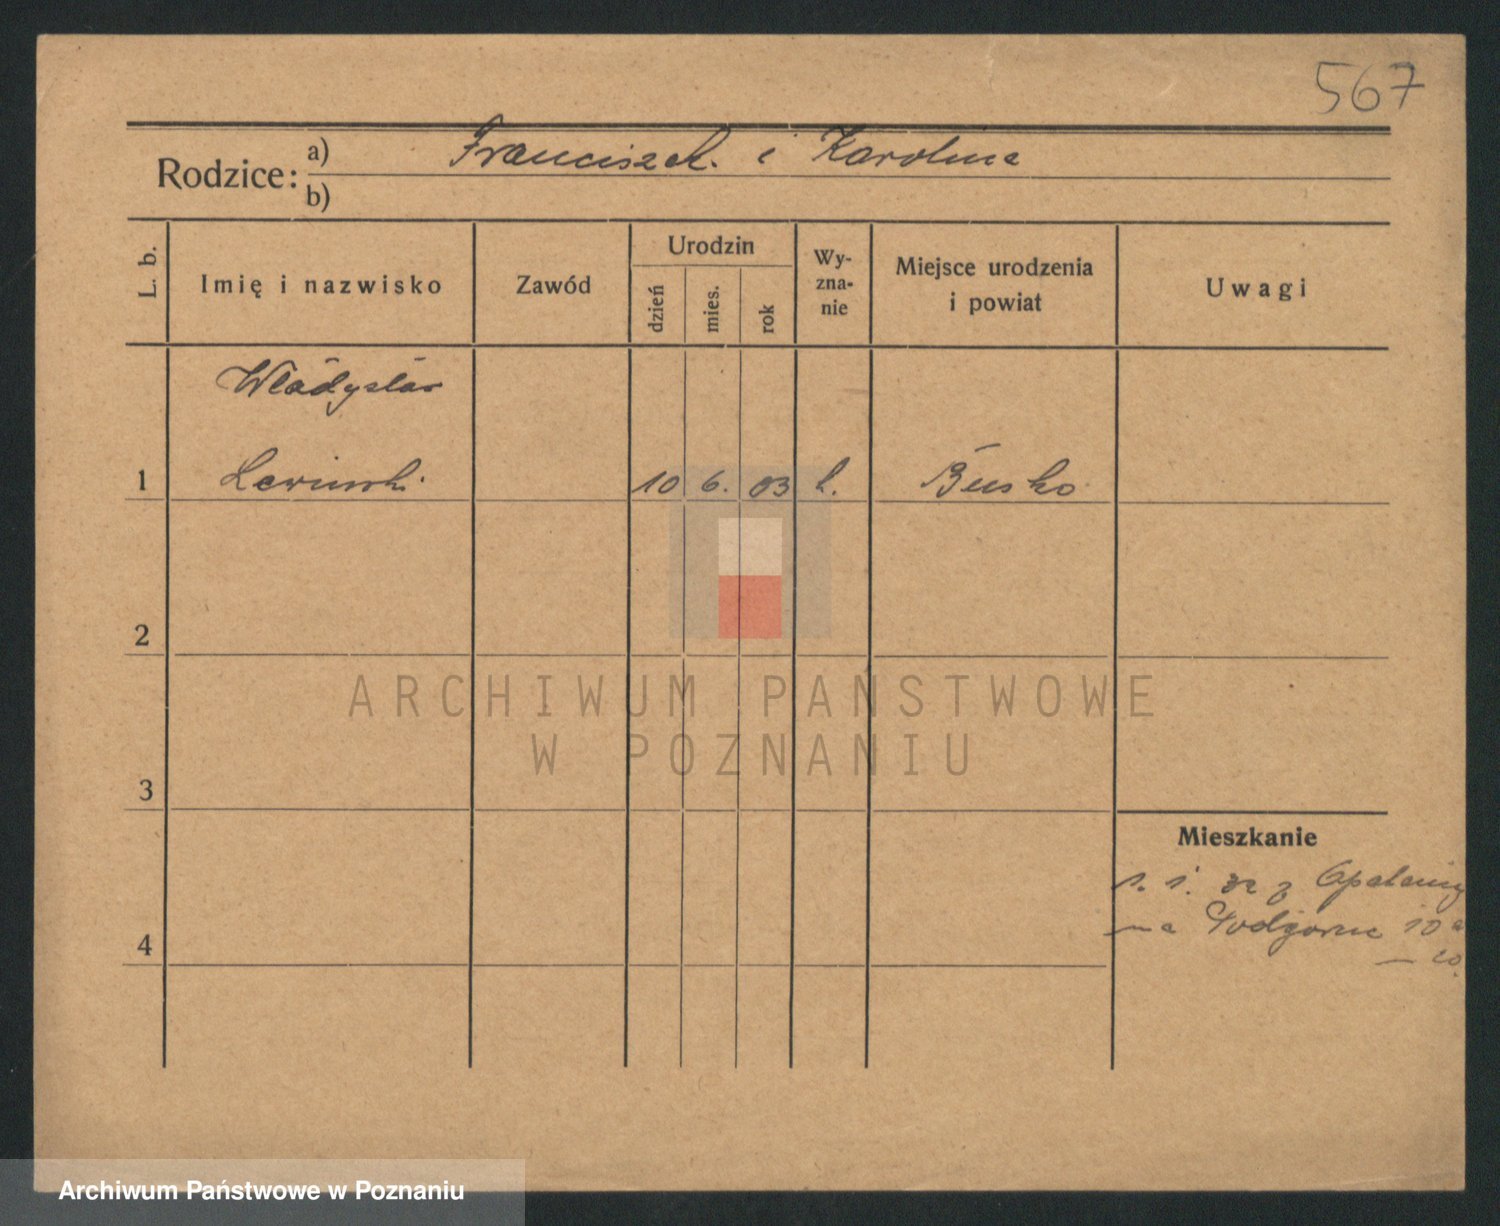 567
Rodzice: a) Franciszek. i Karolina
b)
L. b.
Imię i nazwisko
Zawód
Urodzin
dzień
mies.
rok
Wy-
zna-
nie
Miejsce urodzenia
i powiat
Uwagi
Władysław
1 Lewiński 10 6. 03 k. Busko
2
ARCHIWUM PAŃSTWOWE
W POZNANIU
3
Mieszkanie
Opalenicy
na Podgorne 10a
4
Archiwum Państwowe w Poznaniu